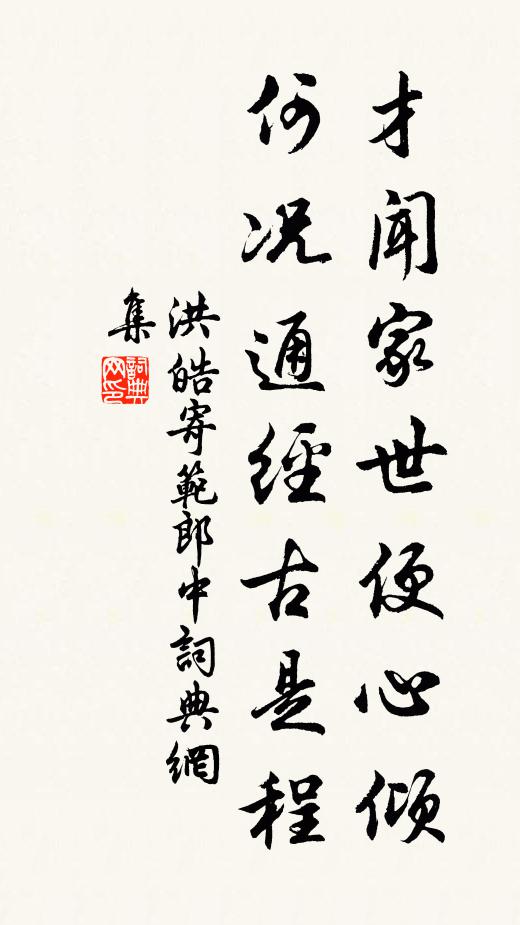 才闻家世便心倾
何况通經古是程
洪皓寄範郎中詞典網
集
詞典
网印